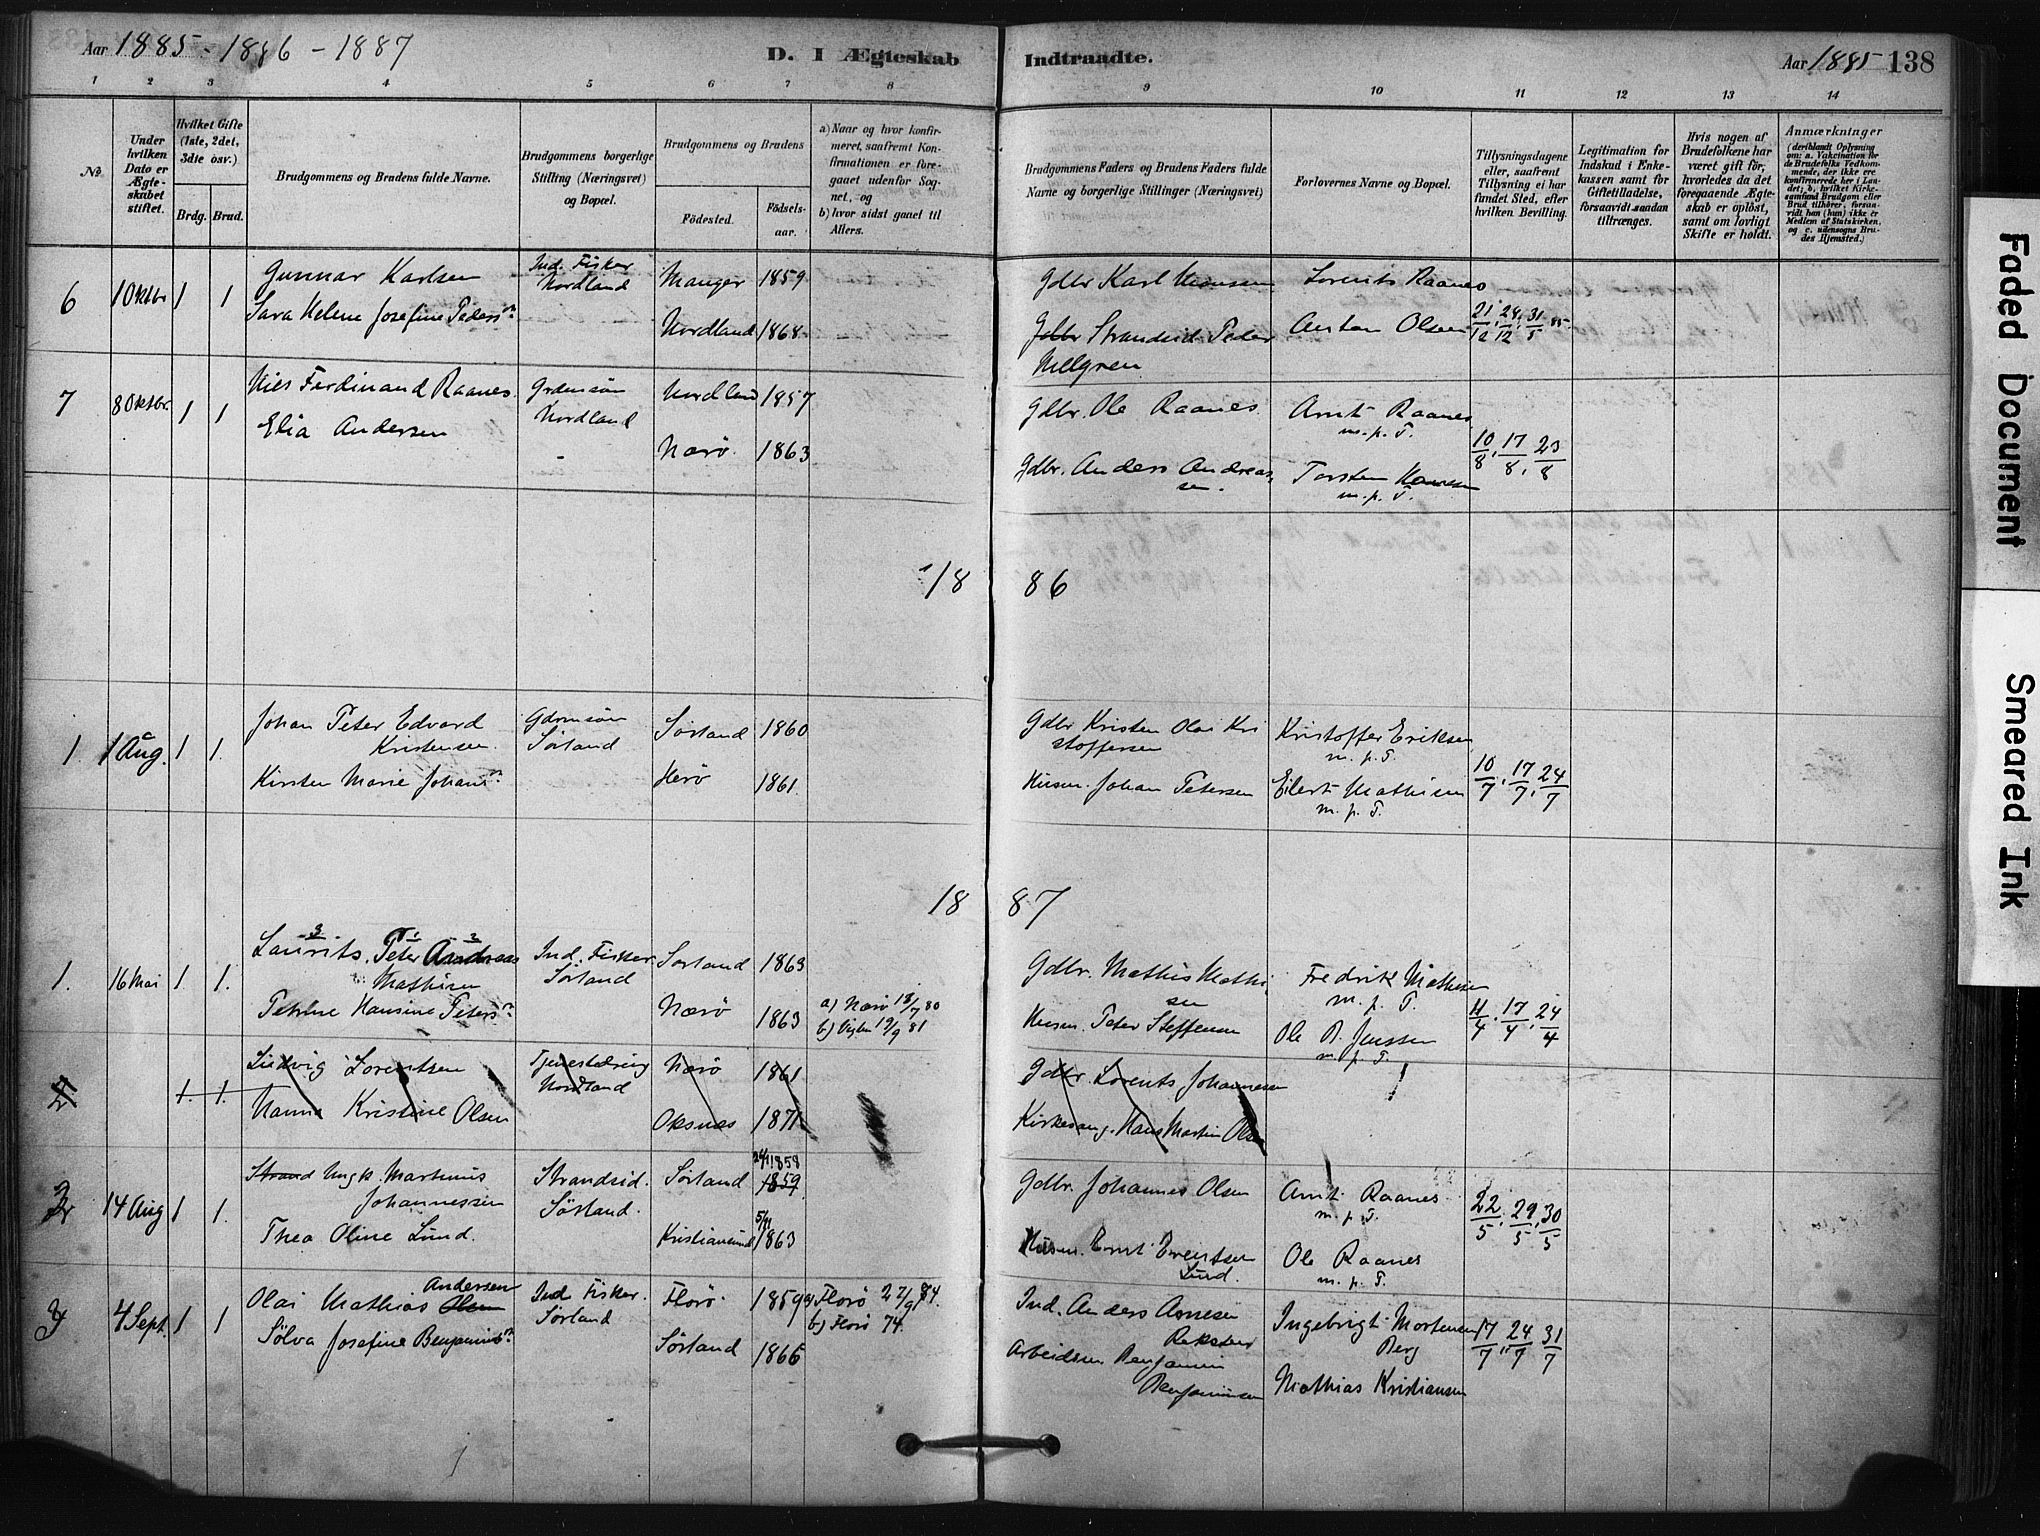 Aar 1885 - 1886 - 1887
D. I Ægteskab Indtraadte.
Aar 1885 138
1 2 3 4 5 6 7 8 9 10 11 12 13 14
No
Under hvilken Dato er Ægteskabet stiftet.
Hvilket Gifte (1ste, 2det, 3die osv.)
Brdg. Brud.
Brudgommens og Brudens fulde Navne.
Brudgommens borgerlige Stilling (Næringsvei) og Bopæl.
Brudgommens og Brudens
Födested. Födsels-aar.
a) Naar og hvor konfirmeret, saafremt Konfirmationen er foregaaet udenfor Sognet, og
b) hvor sidst gaaet til Alters.
Brudgommens Faders og Brudens Faders fulde Navne og borgerlige Stillinger (Næringsvei)
Forlovernes Navne og Bopæl.
Tillysningsdagene eller, saafremt Tillysning ei har fundet Sted, efter hvilken Bevilling.
Legitimation for Indskud i Enkekassen samt for Giftetilladelse, forsaavidt saadan tiltrænges.
Hvis nogen af Brudefolkene har været gift før, hvorledes da det foregaaende Ægteskab er opløst, samt om lovligt Skifte er holdt.
Anmærkninger (deriblandt Oplysning om: a. Vakcination for de Brudefolks Vedkommende, der ikke ere konfirmerede her i Landet; b. hvilket Kirkesamfund Brudgom eller Brud tilhörer, forsaavidt han (hun) ikke er Medlem af Statskirken, og c. udensogns Brudes Hjemsted.)
6 1 Oktbr 1 1 Gunnar Karlsen Ind. Fisker Nordland Manger 1859 Gdbr Karl Monssen Lorents Raanes
Sara Helene Josefine Peders n Nordland 1868 Gdbr Strandsid Peder Hellgren Anton Olsen 21/12, 28/12, 31/5 85
7 8 Oktbr. 1 1 Nils Ferdinand Raanes Grdmsøn Nordland Nordland 1857 Gdbr. Ole Raanes Arnt Raanes m. p. P.
Elia Andersen - Nærö. 1863 Gdbr. Anders Andreassen. Torsten Hansen m. p. P. 10/8, 17/8, 23/8
1886
1 1 Aug. 1 1. Johan Peter Edvard Kristensen. Gdrmsøn Sörland Sörland 1860 Gdbr Kristen Olai Kristoffersen Kristoffer Eriksen m. p. P.
Kirsten Marie Johans n. Herö 1861. Husm. Johan Petersen Eilert Mathisen m. p. P. 10/7, 17/7, 24/7
1887
1. 16 Mai 1. 1. Laurits Peter Andreas Mathisen Ind. Fisker Sörland Sörland 1863 Gdbr. Mathis Mathisen Fredrik Mathisen m. p. P.
Petrine Hansine Peters n Nærö 1863 a) Nærö 18/7 80 b) Vigten 19/9 81 Husm. Peter Steffensen Ole R. Jenssen m. p. P. 11/4, 17/4, 24/4
2 1. 1. Ludvig Lorentsen Tjenestedreng Nordland Nærö 1861 Gdbr. Lorents Johannesen
Hanna Kristine Olsen Oksnæs 1871 Kirkesang. Hans Martin Olsen
2 14 Aug 1 1. Strand Ungk. Martinus Johannessen Strandsid. Sörland. Sörland 24/1 1858 1859 Gdbr. Johannes Olsen Arnt Raanes m. p. P.
Thea Oline Lund. Kristiansund 5/11 1863 Husm. Ernt Erentsen Lund. Ole Raanes m. p. P. 22/5, 29/5, 30/5
3 4 Sept. 1 1 Olai Mathias Olsen Andersen Ind Fisker. Sörland Florö 1859 a) Florö 22/9 74. b) Florö 74. Ind. Anders Arnesen Rekster Ingebrigt Mortensen Berg
Sölva Josefine Benjamins n Sörland 1866 Arbeidsm. Benjamin Benjaminsen Mathias Kristiansen 17/7, 24/7, 31/7
Faded Document
Smeared Ink